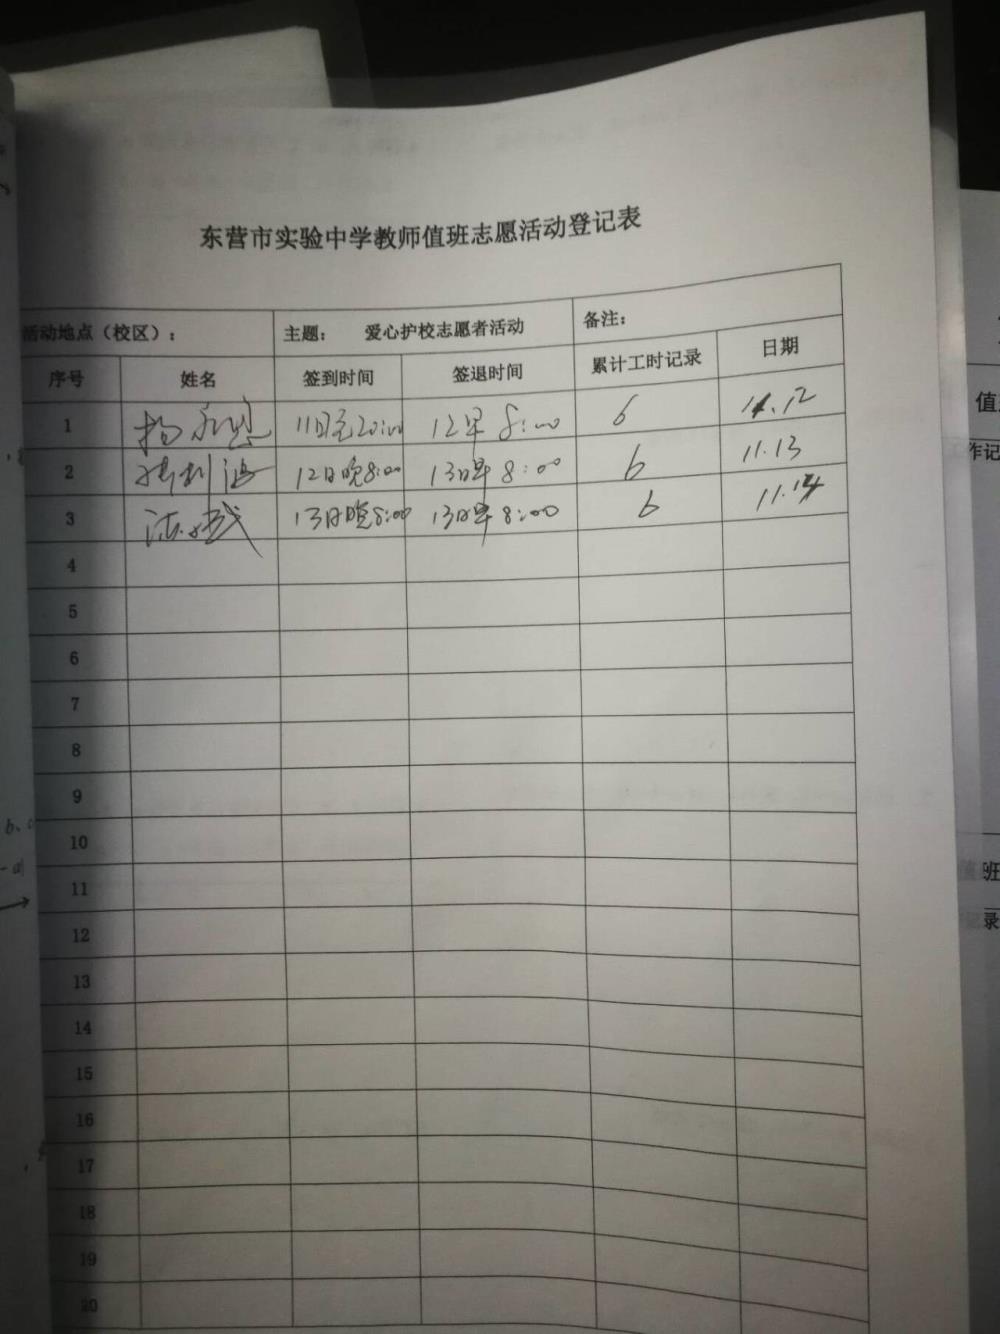 东营市实验中学教师值班志愿活动登记表
活动地点（校区）： 主题： 爱心护校志愿者活动 备注：
序号 姓名 签到时间 签退时间 累计工时记录 日期
1 11日 20:00 12早 8:00 6 11.12
2 12日晚8:00 13日早 8:00 6 11.13
3 13日晚8:00 13日早 8:00 6 11.14
4
5
6
7
8
9
10
11
12
13
14
15
16
17
18
19
20
值
作记
班
录